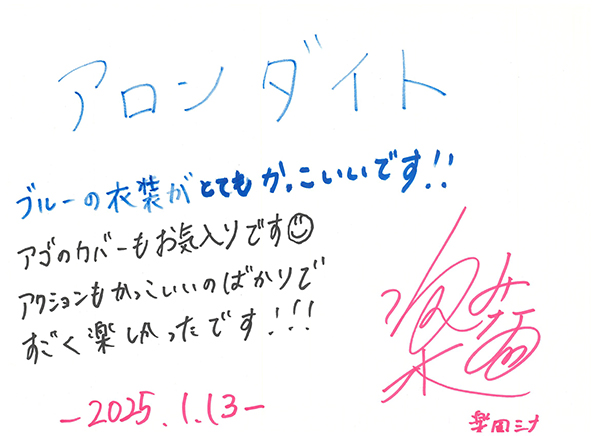 アロンダイト
ブルーの衣装がとてもかっこいいです!!
アゴのカバーもお気入りです
アクションもかっこいいのばかりで
すごく楽しかったです!!!
-2025.1.13-